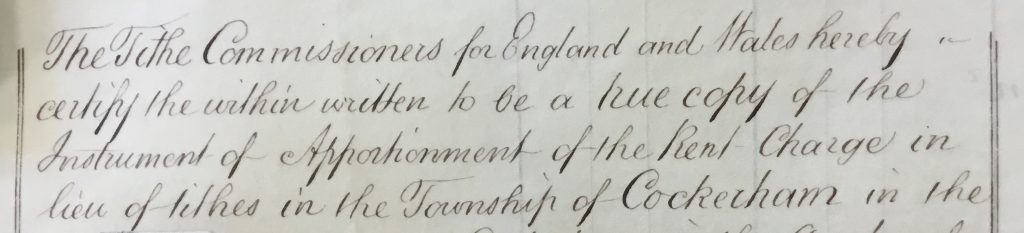 The Tithe Commissioners for England and Wales hereby
certify the within written to be a true copy of the
Instrument of Apportionment of the Rent Charge in
lieu of tithes in the Township of Cockerham in the